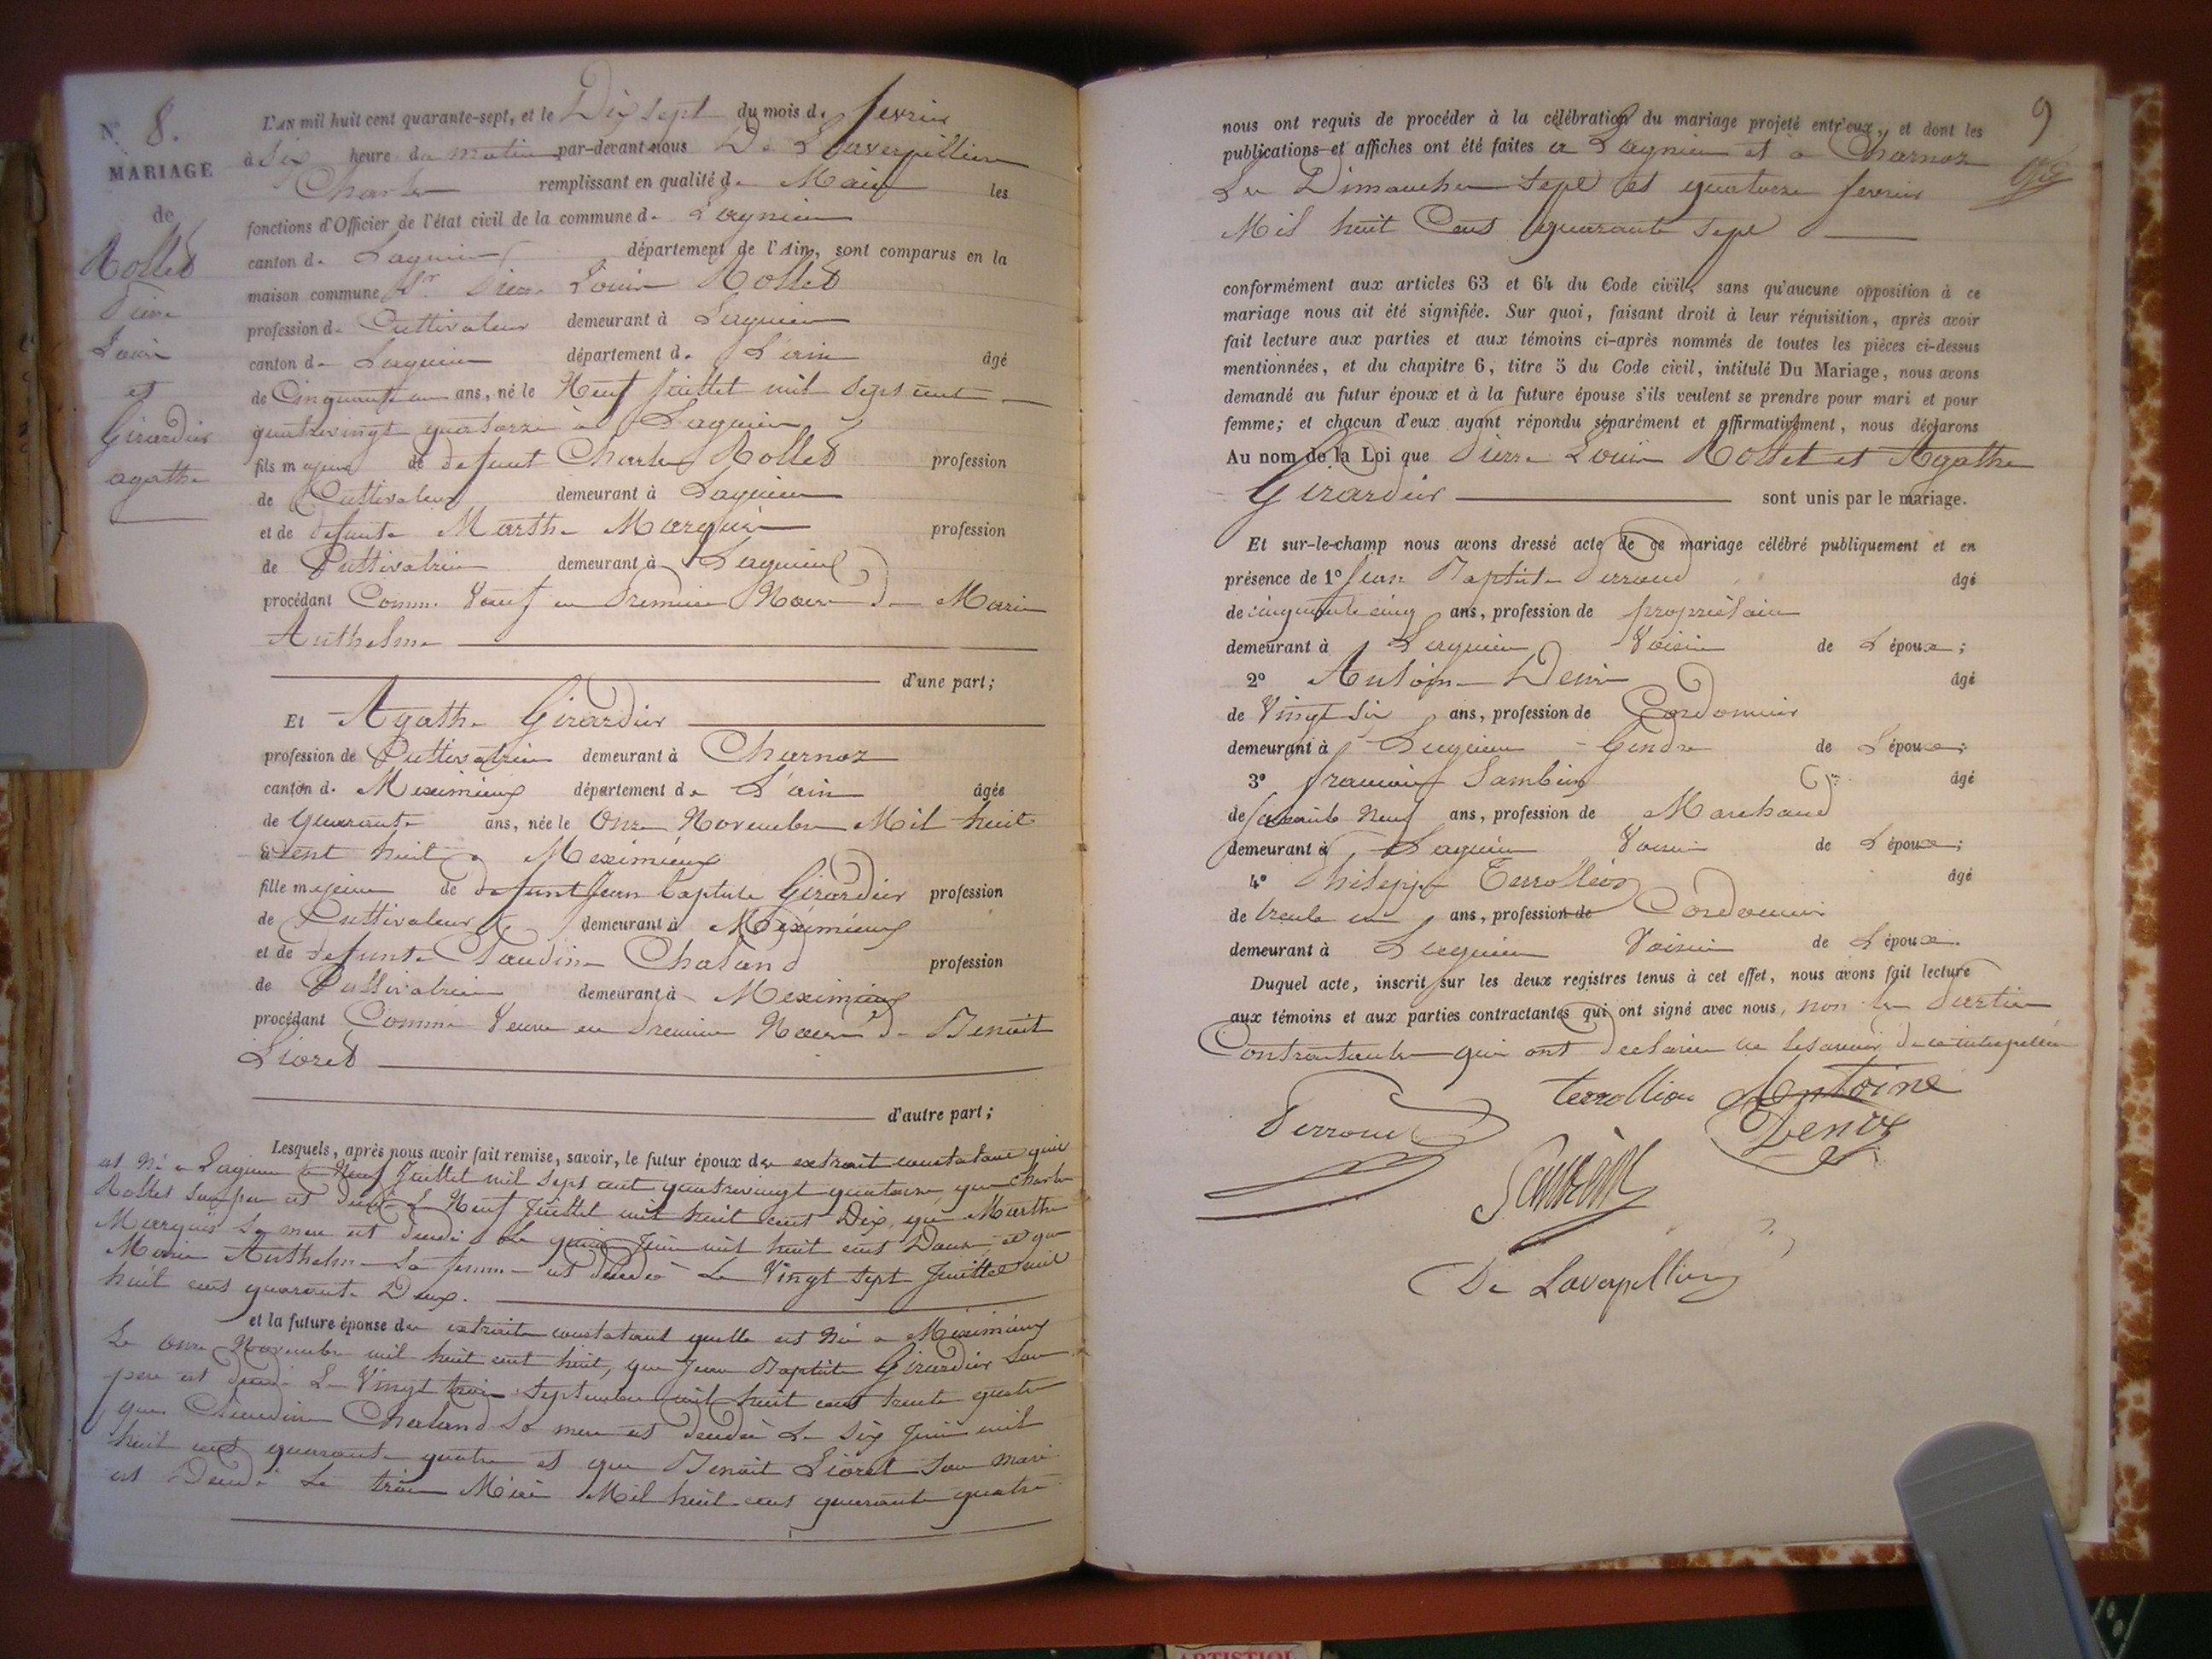 N.° 8.
MARIAGE
de
Rollet
Pierre
Louis
et
Girardier
agathe
L'AN mil huit cent quarante-sept, et le Dix sept du mois de fevrier
à Six heures du matin par-devant nous De Laverpillière
Charles remplissant en qualité de Maire les
fonctions d'Officier de l'état civil de la commune de Lagnieu
canton de Lagnieu département de l'Ain, sont comparus en la
maison commune Sr. Pierre Louis Rollet
profession de Cultivateur demeurant à Lagnieu
canton de Lagnieu département de L'ain âgé
de Cinquante ans, né le Neuf juillet mil sept cent
quatrevingt quatorze à Lagnieu
fils majeur de defunt Charles Rollet profession
de Cultivateur demeurant à Lagnieu
et de defunte Marthe Marquis profession
de Cultivatrice demeurant à Lagnieu
procédant Comme Veuf en Premiere Noces de Marie
Anthelme
d'une part;
Et Agathe Girardier
profession de Cultivatrice demeurant à Charnoz
canton de Meximieux département de L'ain âgée
de quarante ans, née le Onze Novembre Mil huit
cent huit a Meximieux
fille majeure de defunt Jean baptiste Girardier profession
de Cultivateur demeurant à Méximieux
et de defunte Claudine Chaland profession
de Cultivatrice demeurant à Meximieux
procédant Comme Veuve en Premiere Noces de Benoit
Lioret
d'autre part;
Lesquels, après nous avoir fait remise, savoir, le futur époux des extrait constatant quil
est né a Lagnieu le Neuf Juillet mil sept cent quatrevingt quatorze, que Charles
Rollet son pere est decedé Le Neuf Juillet mil huit cent Dix, que Marthe
Marquis Sa mere est decedé Le Juin mil huit cent Douze et que
Marie Anthelme Sa femme est decedeé Le Vingt sept Juillet mil
huit cent quarante Deux.
et la future épouse des extraits constatant quelle est Née a Méximieux
Le onze Novembre mil huit cent huit, que Jean Baptiste Girardier Son
pere est decedé Le Vingt trois Septembre mil huit cent trente quatre
que Claudine Chaland Sa mere est decedée Le Six Juin mil
huit cent quarante quatre et que Benoit Lioret Son mari
est Decedé Le trois Mai Mil huit cent quarante quatre
9
nous ont requis de procéder à la célébration du mariage projeté entr'eux, et dont les
publications et affiches ont été faites a Lagnieu et a Charnoz
Les Dimanches Sept et quatorze fevrier
Mil huit Cent quarante Sept
conformément aux articles 63 et 64 du Code civil, sans qu'aucune opposition à ce
mariage nous ait été signifiée. Sur quoi, faisant droit à leur réquisition, après avoir
fait lecture aux parties et aux témoins ci-après nommés de toutes les pièces ci-dessus
mentionnées, et du chapitre 6, titre 5 du Code civil, intitulé Du Mariage, nous avons
demandé au futur époux et à la future épouse s'ils veulent se prendre pour mari et pour
femme; et chacun d'eux ayant répondu séparément et affirmativement, nous déclarons
Au nom de la Loi que Pierre Louis Rollet et Agathe
Girardier sont unis par le mariage.
Et sur-le-champ nous avons dressé acte de ce mariage célébré publiquement et en
présence de 1° Jean Baptiste Perroud âgé
de cinquante cinq ans, profession de propriétaire
demeurant à Lagnieu Voisin de L'époux;
2° Antoine Denis âgé
de Vingt Six ans, profession de Cordonnier
demeurant à Lagnieu Gendre de L'époux;
3° francois Sambin âgé
de Soixante Neuf ans, profession de Marchand
demeurant à Lagnieu Voisin de L'époux;
4° Philippe Terrollion âgé
de trente un ans, profession de Cordonnier
demeurant à Lagnieu Voisin de L'époux.
Duquel acte, inscrit sur les deux registres tenus à cet effet, nous avons fait lecture
aux témoins et aux parties contractantes qui ont signé avec nous, non les Parties
Contractantes qui ont declarées ne le savoir de ce interpellées
terrollion Antoine
Perroud Denis
Sambin
De Laverpillière